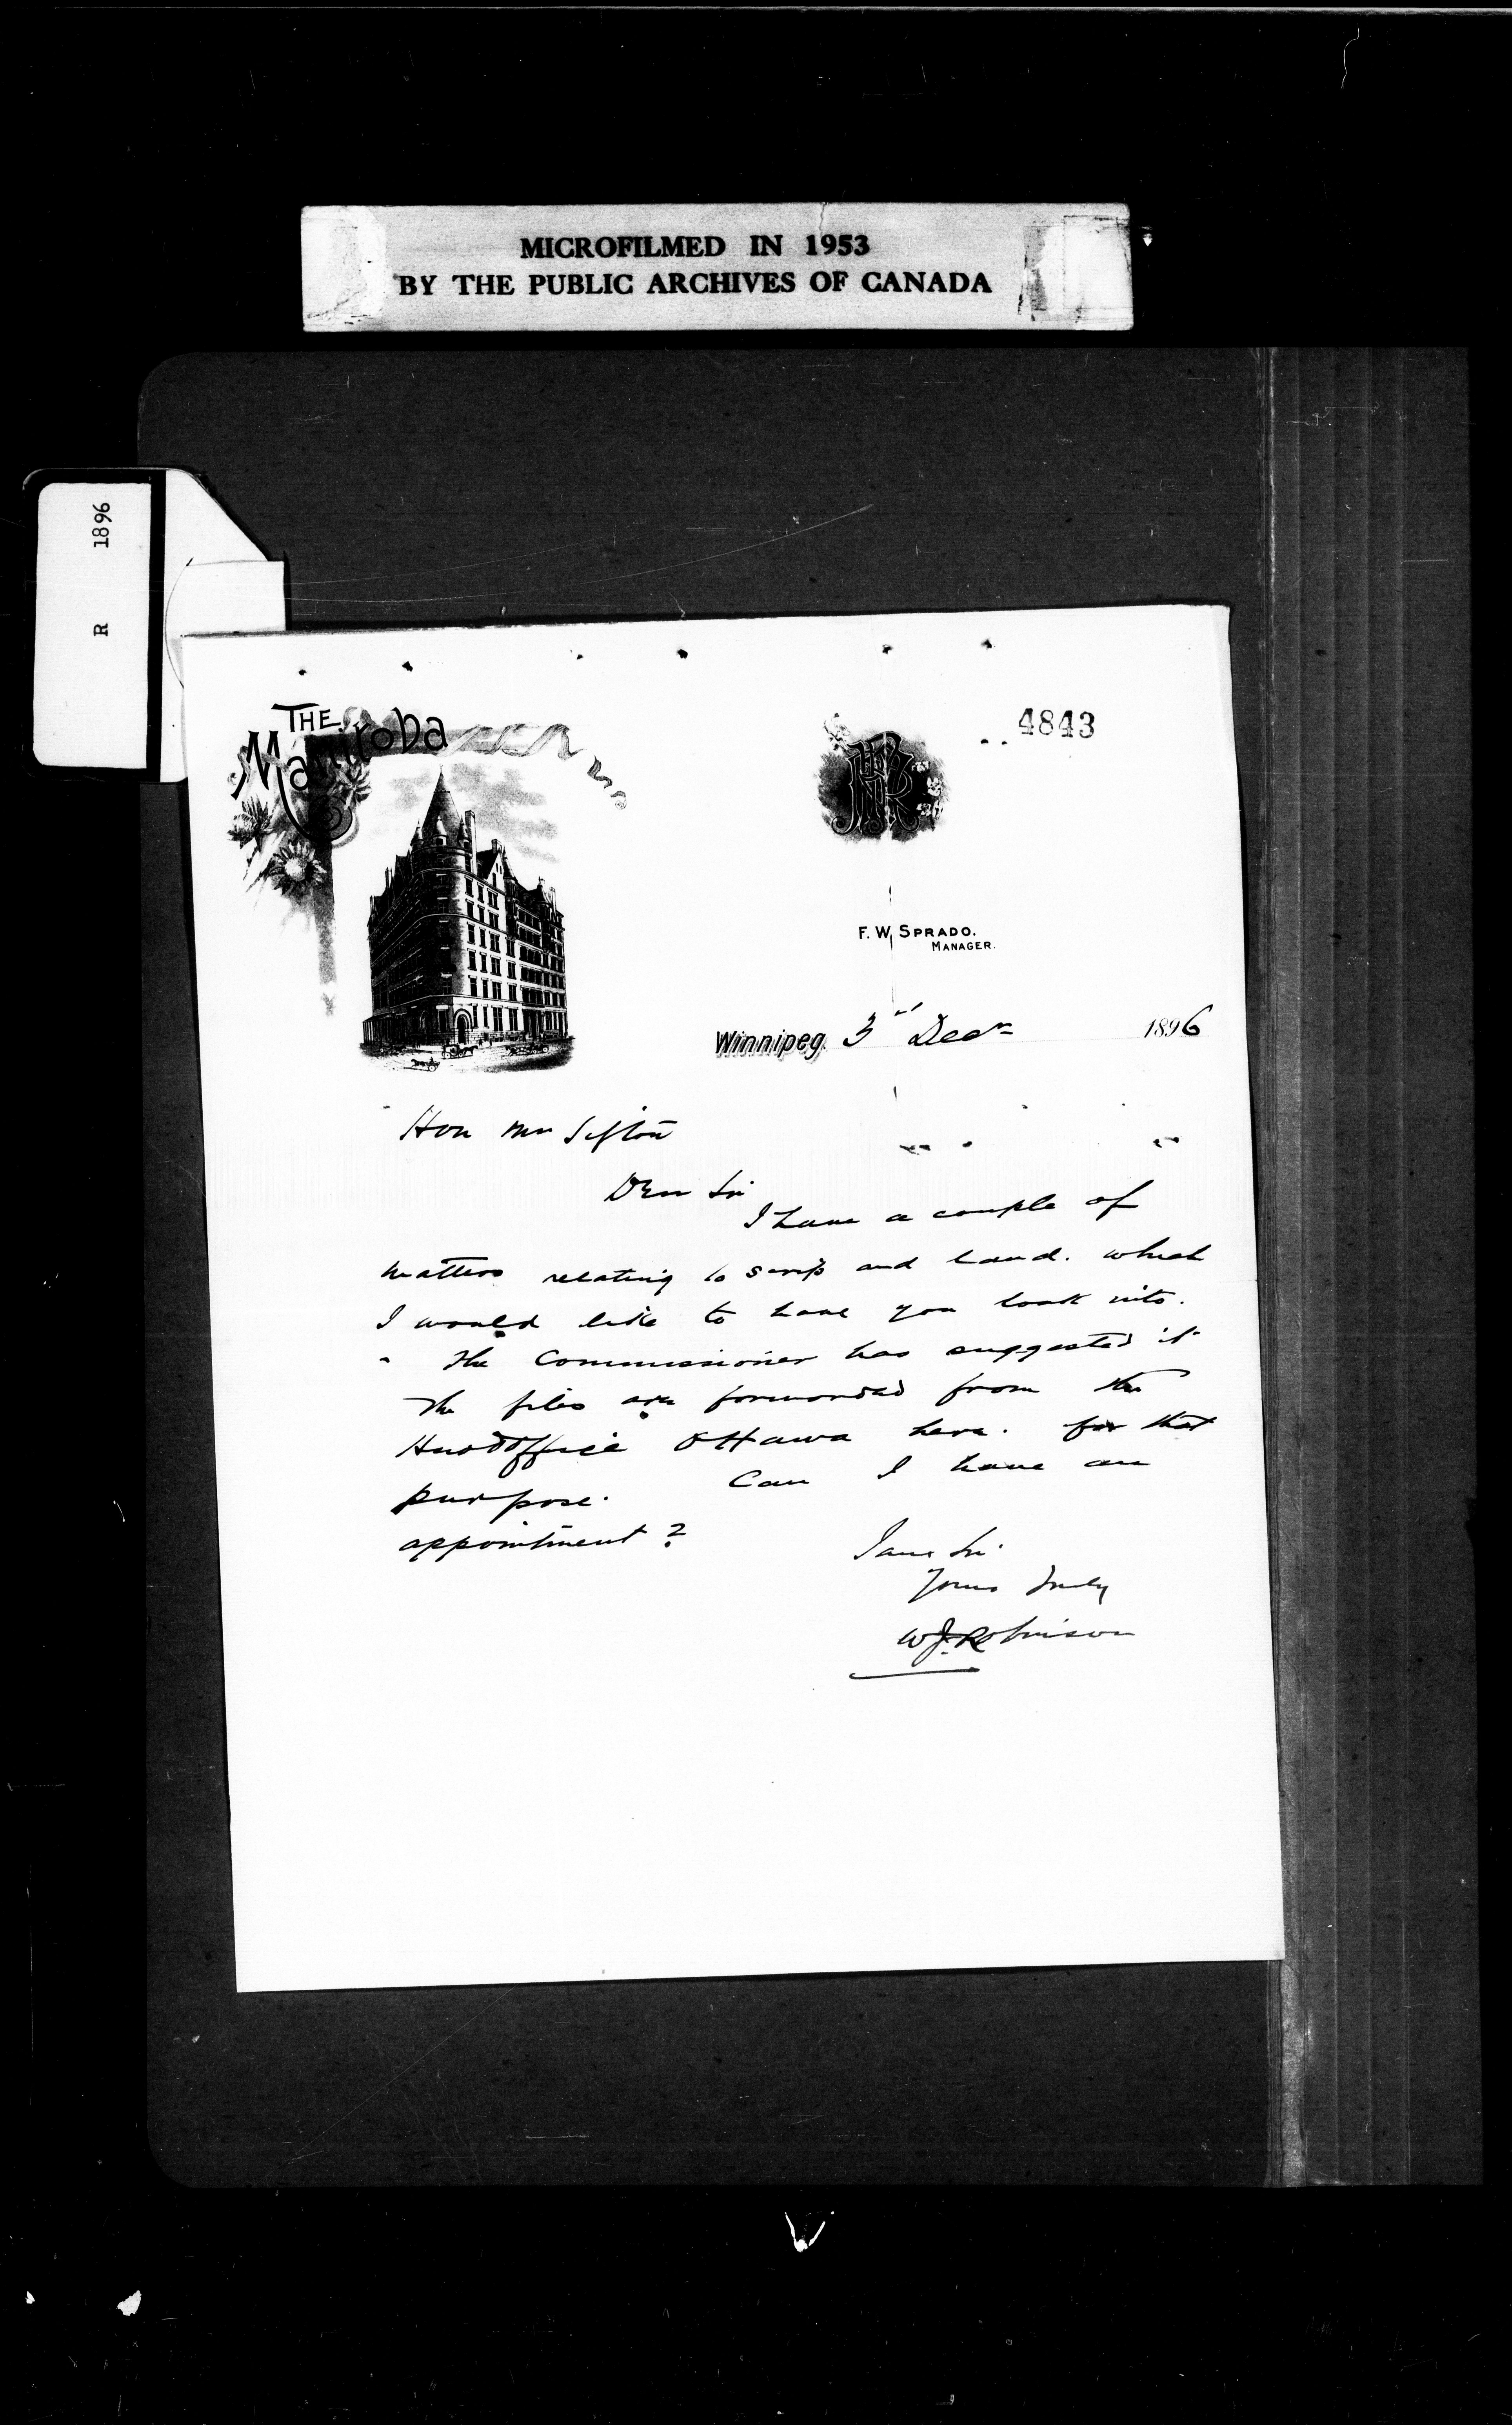 MICROFILMED IN 1953
BY THE PUBLIC ARCHIVES OF CANADA
R 1896
THE
Manitoba
4843
F. W. SPRADO.
MANAGER.
Winnipeg. 3rd Decr 1896
Hon Mr Sifton
Dear Sir
I have a couple of
matters relating to scrip and land. which
I would like to have you look into.
The Commissioner has suggested it
The files are forwarded from the
Head office Ottawa here. for that
purpose. Can I have an
appointment?
I am Sir
Yours Truly
W J. Robinson